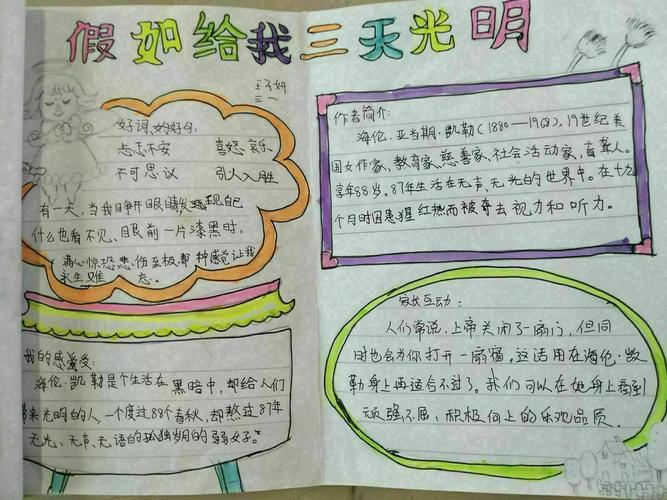 假如给我三天光明
王子妍
三一
好词,妙好句:
忐忑不安 喜怒哀乐
不可思议 引人入胜
有一天,当我睁开眼睛发现自己
什么也看不见、眼前一片漆黑时,
满心惊恐悲伤至极,那种感觉让我
永生难忘。
我的感受:
海伦·凯勒是个生活在黑暗中,却给人们
带来光明的人,一个度过88个春秋,却熬过87年
无光、无声、无语的孤独岁月的弱女子。
作者简介:
海伦·亚当斯·凯勒(1880—1968),19世纪美
国女作家、教育家、慈善家、社会活动家,盲聋人。
享年88岁。87年生活在无声、无光的世界中。在十九
个月时因患猩红热而被夺去视力和听力。
家长互动:
人们常说,上帝关闭了一扇门,但同
时也会为你打开一扇窗,这话用在海伦·凯
勒身上再适合不过了。我们可以在她身上看到
顽强不屈,积极向上的乐观品质。